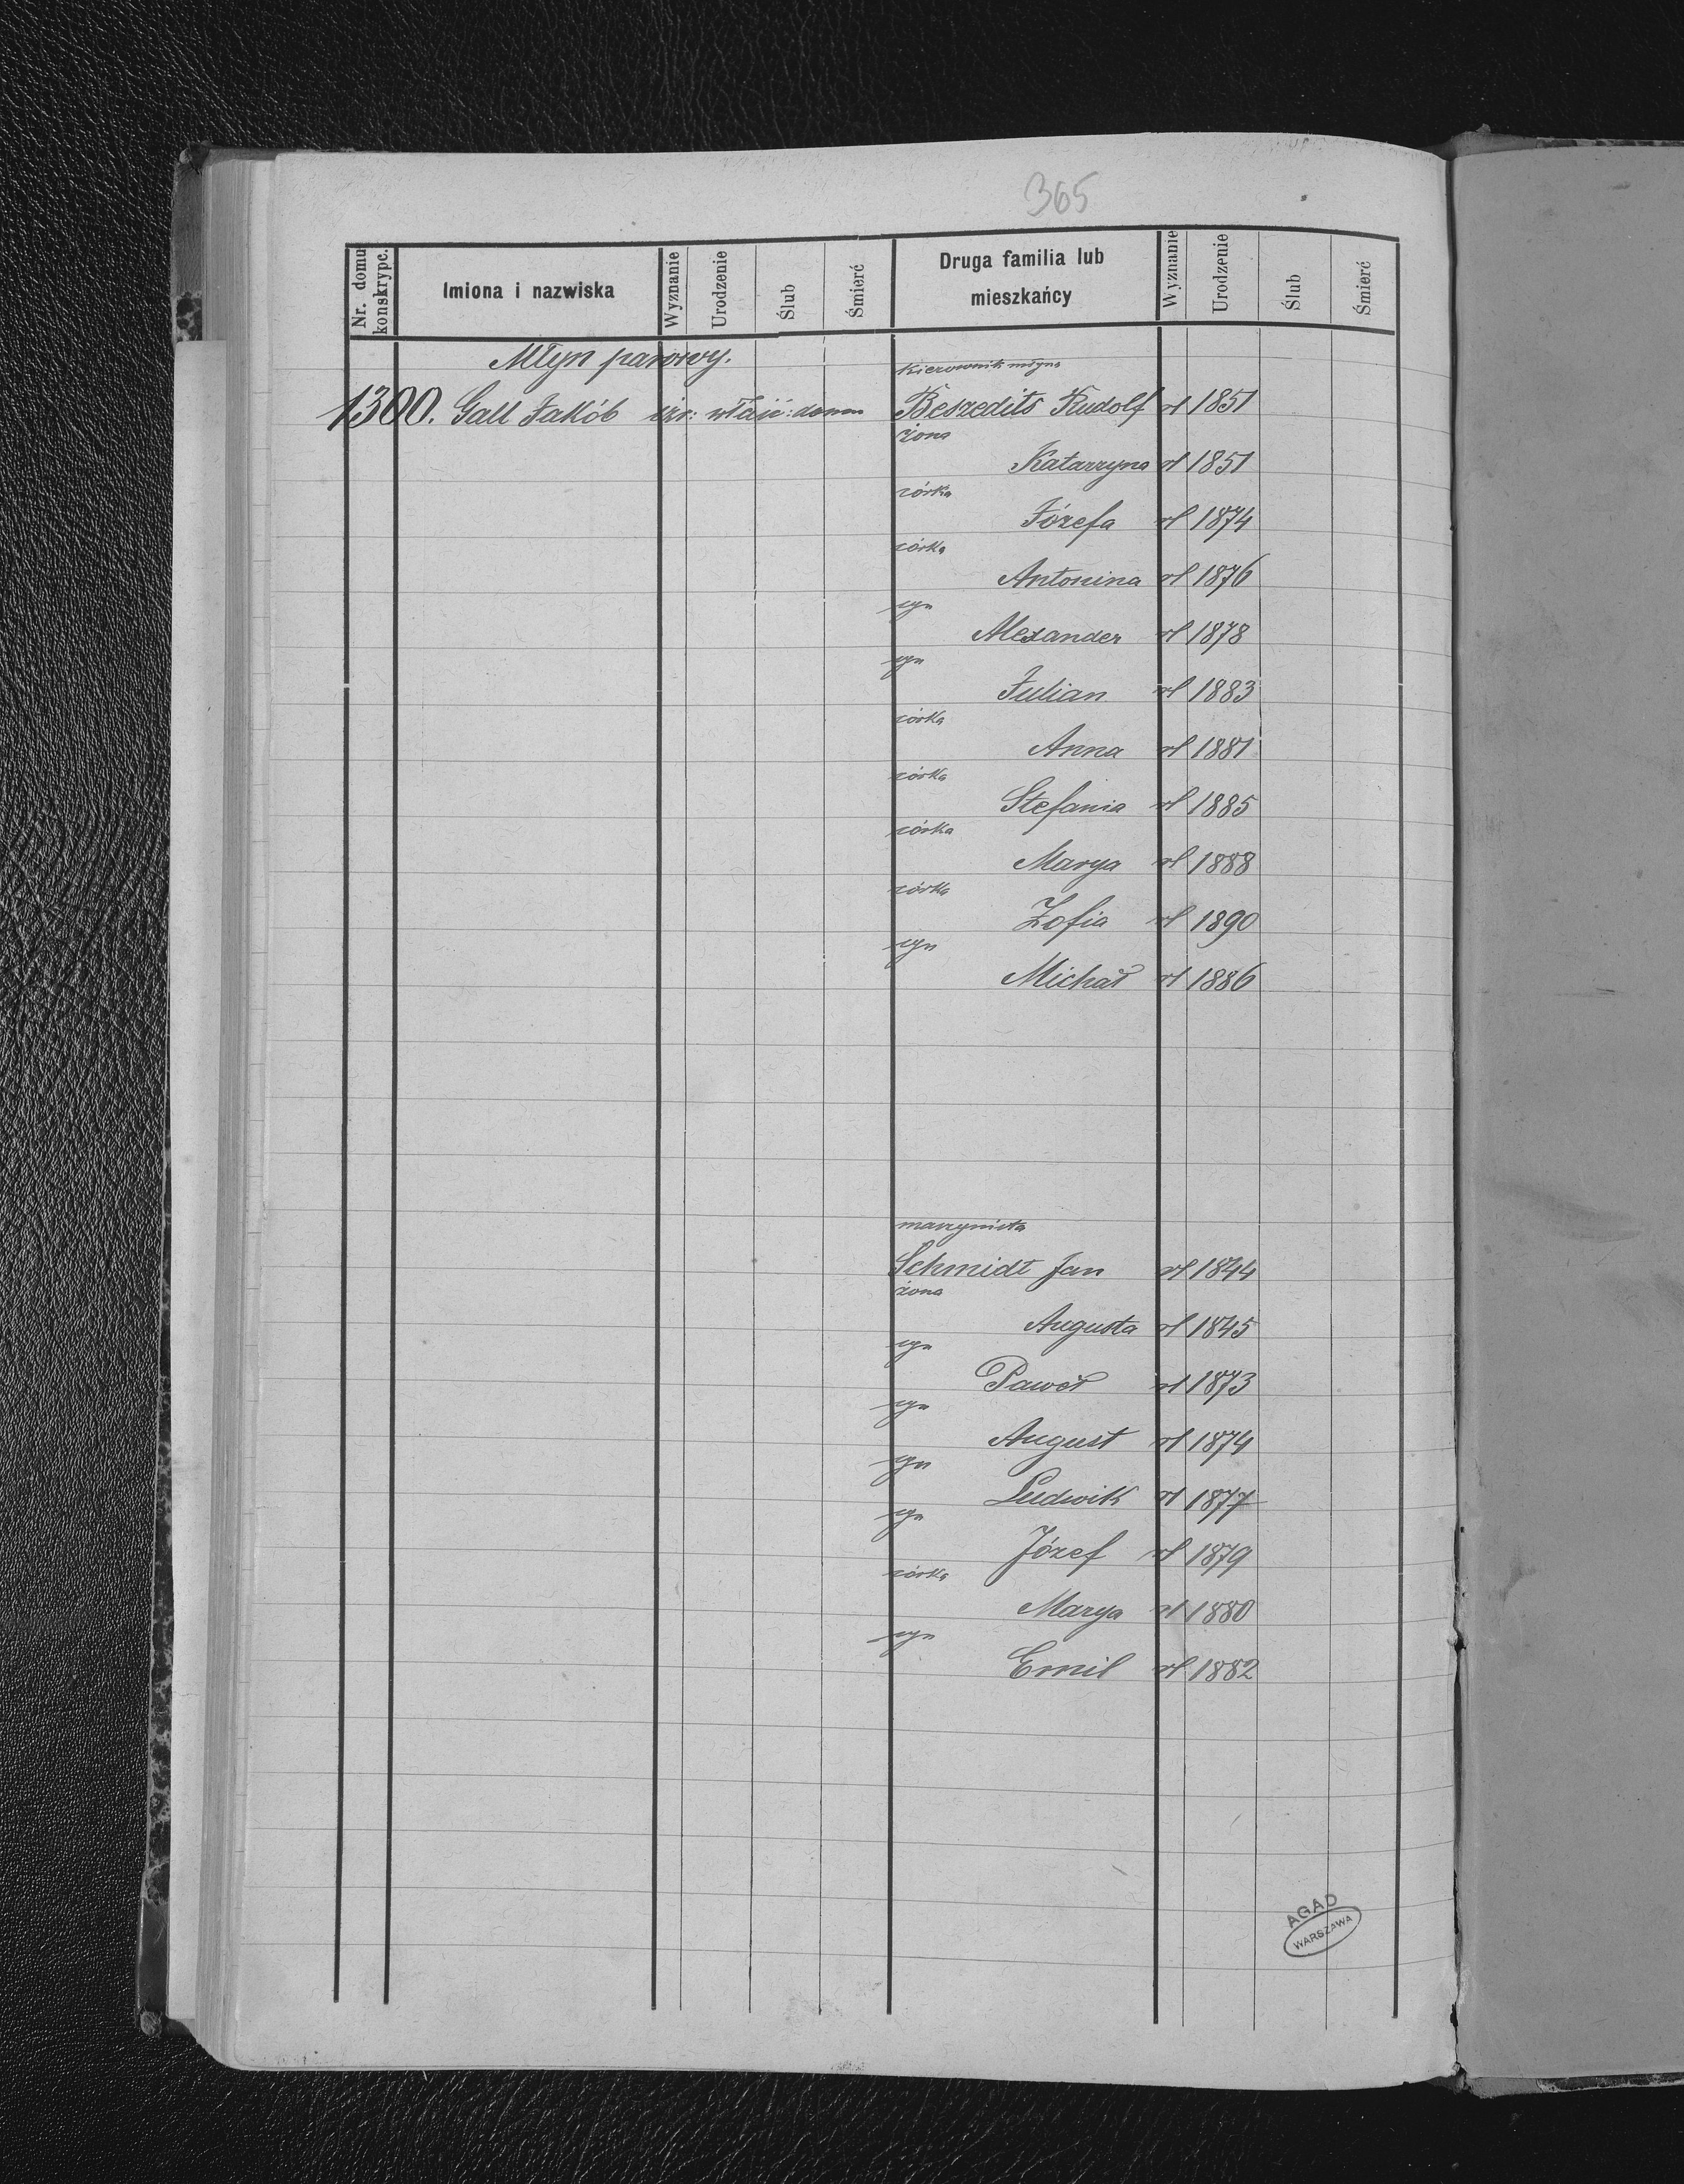 365
Nr. domu konskrypc.
Imiona i nazwiska
Wyznanie
Urodzenie
Ślub
Śmierć
Druga familia lub mieszkańcy
Wyznanie
Urodzenie
Ślub
Śmierć
Młyn parowy.
kierownik młyna
1300. Gall Jakób izr: właść: domu Beszedits Rudolf rl 1851
żona
Katarzyna rl 1851
córka
Józefa rl 1874
córka
Antonina rl 1876
syn
Alexander rl 1878
syn
Julian rl 1883
córka
Anna rl 1881
córka
Stefania rl 1885
córka
Marya rl 1888
córka
Zofia rl 1890
syn
Michał rl 1886
maszynista
Schmidt Jan rl 1844
żona
Augusta rl 1845
syn
Paweł rl 1873
syn
August rl 1874
syn
Ludwik rl 1877
syn
Józef rl 1879
córka
Marya rl 1880
syn
Emil rl 1882
AGAD
WARSZAWA